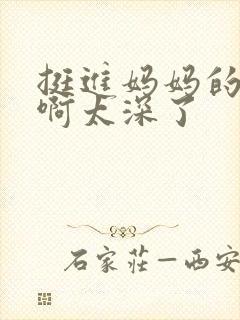 挺进妈妈的
啊太深了
石家莊—西安